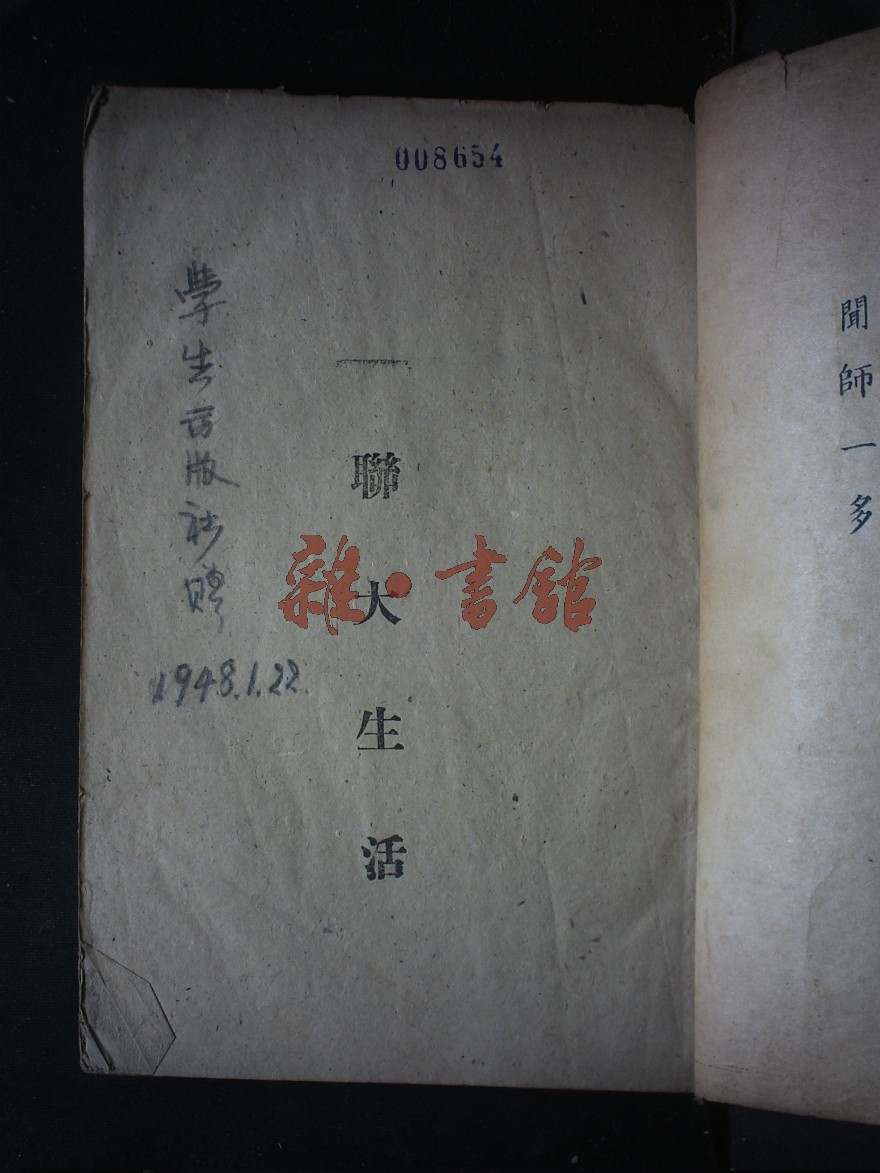 008654
聞師一多
一
聯大生活
學生出版社贈
1948.1.22.
雜·書館